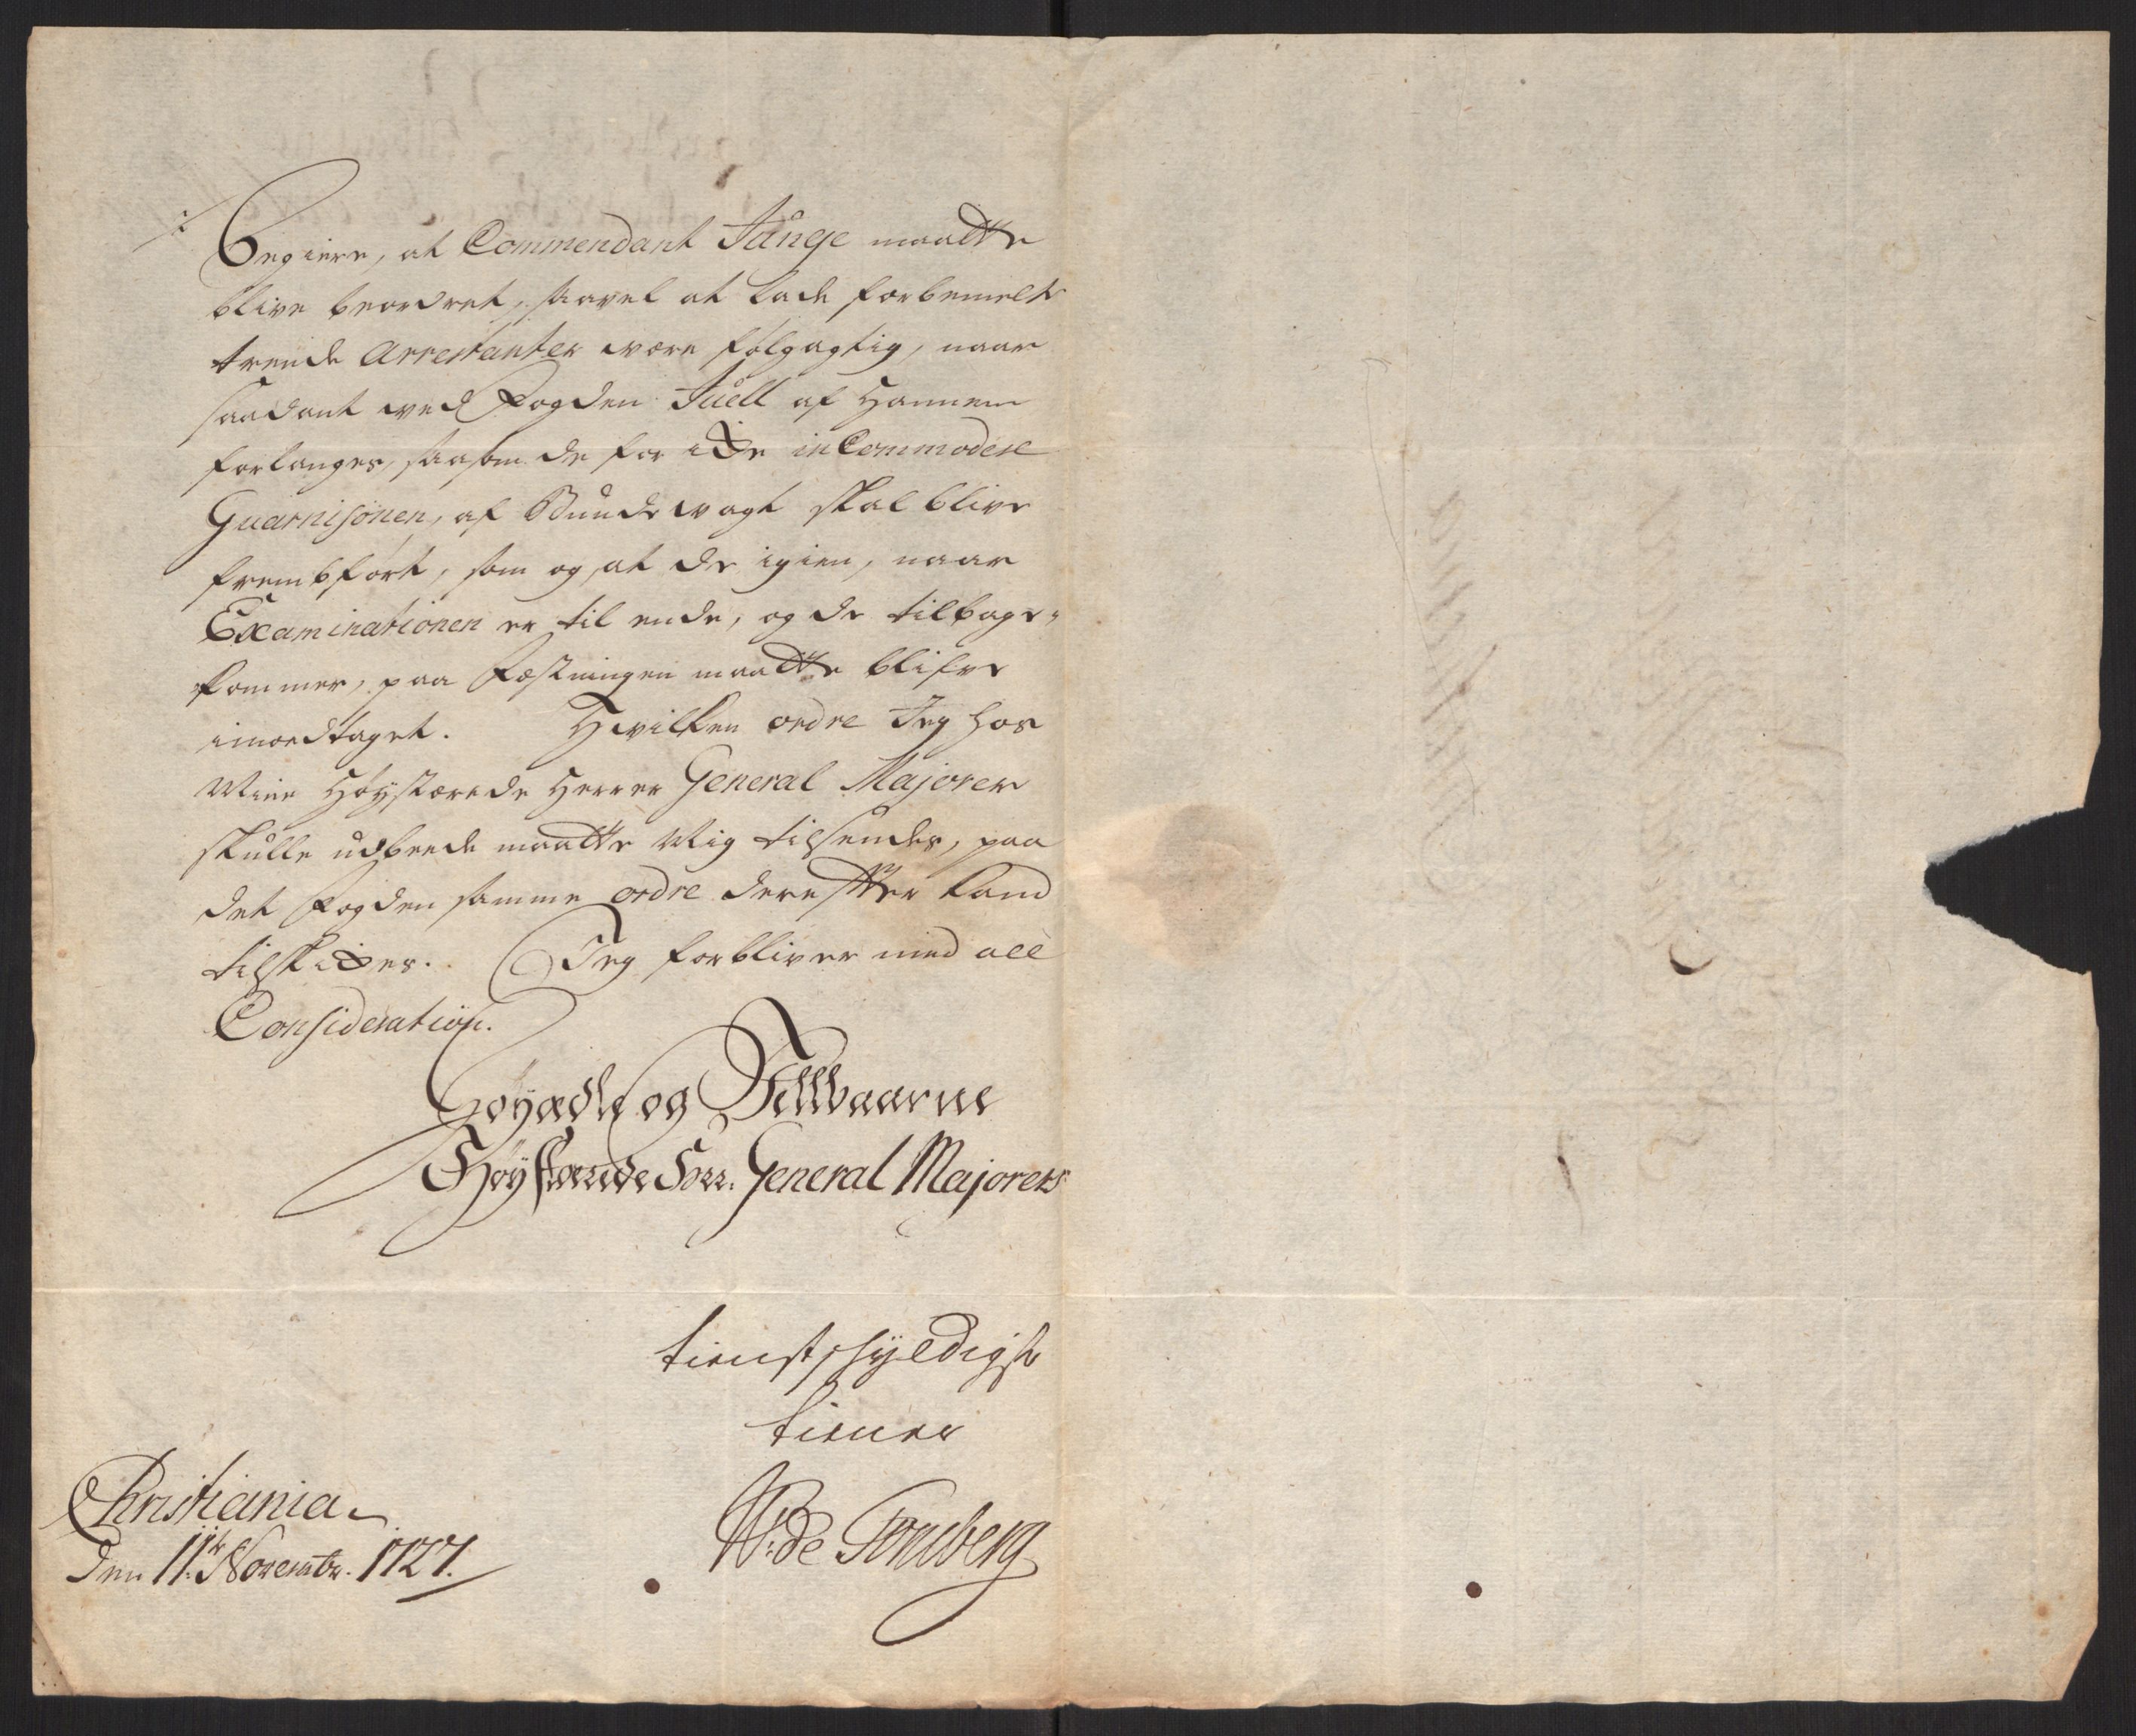 Begiere, at Commendant Junge maatte
blive beordret, saavel at lade forbemelte
trende Arrestanter være følgagtig, naar
saadant ved Fogden Juell af Hannem
forlanges, saasom de for icke inCommodere
Guarnisonen, af Bunde vagt skal blive
frembført, som og, at de igien, naar
Examinationen er til ende, og de tilbage-
kommer, paa Fæstningen maatte blifve
imodtaget. Hvilken ordre Jeg hos
Min Høystærede Herrer General Majorer
skulle udbeede maatte Mig tilsendes, paa
det Fogden samme ordre derefter kand
tilskickes. Jeg forbliver med all
Consideration.
Høyædle og Velbaarne
Høystærede Herr. General Majorers
tienstskyldigste
tiener
W: de Tonsberg
Christiania
Den 11te Novembr. 1727.